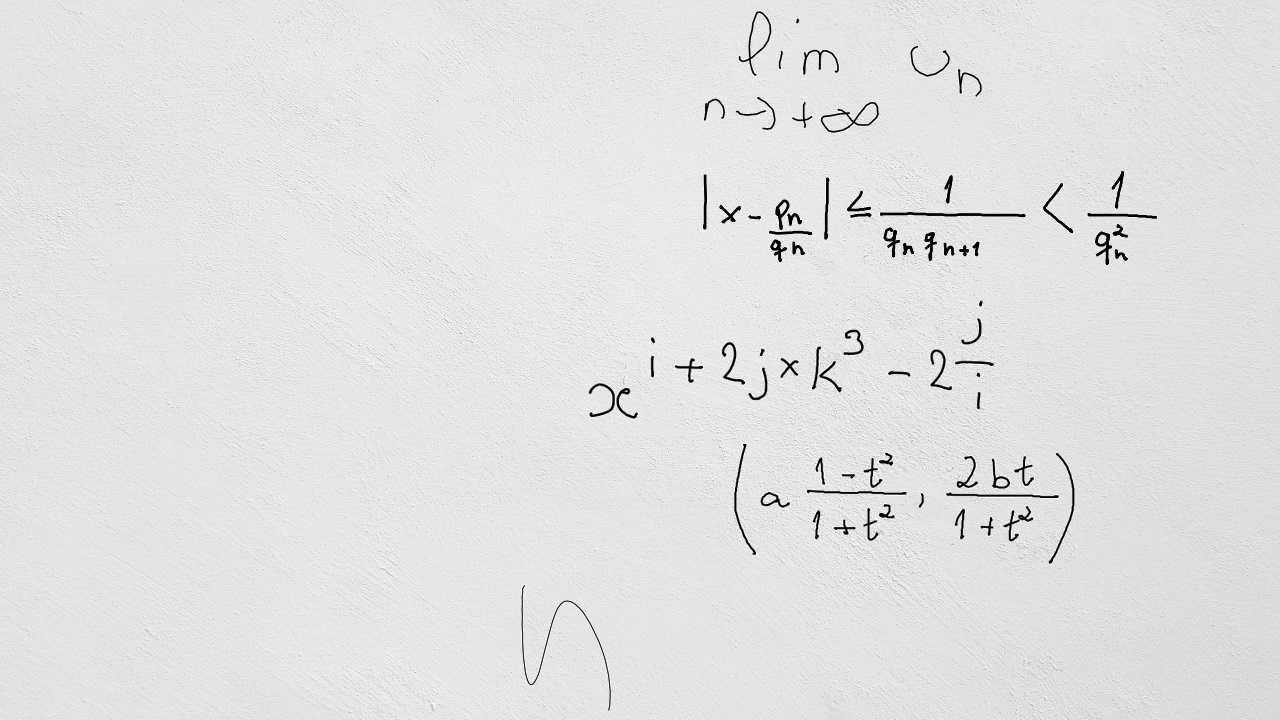 \lim_{n \to +\infty} u_n
\left| x - \frac{p_n}{q_n} \right| \leq \frac{1}{q_n q_{n+1}} < \frac{1}{q_n^2}
x^{i + 2j \times k^3 - 2\frac{j}{i}}
\left( a \frac{1-t^2}{1+t^2}, \frac{2bt}{1+t^2} \right)